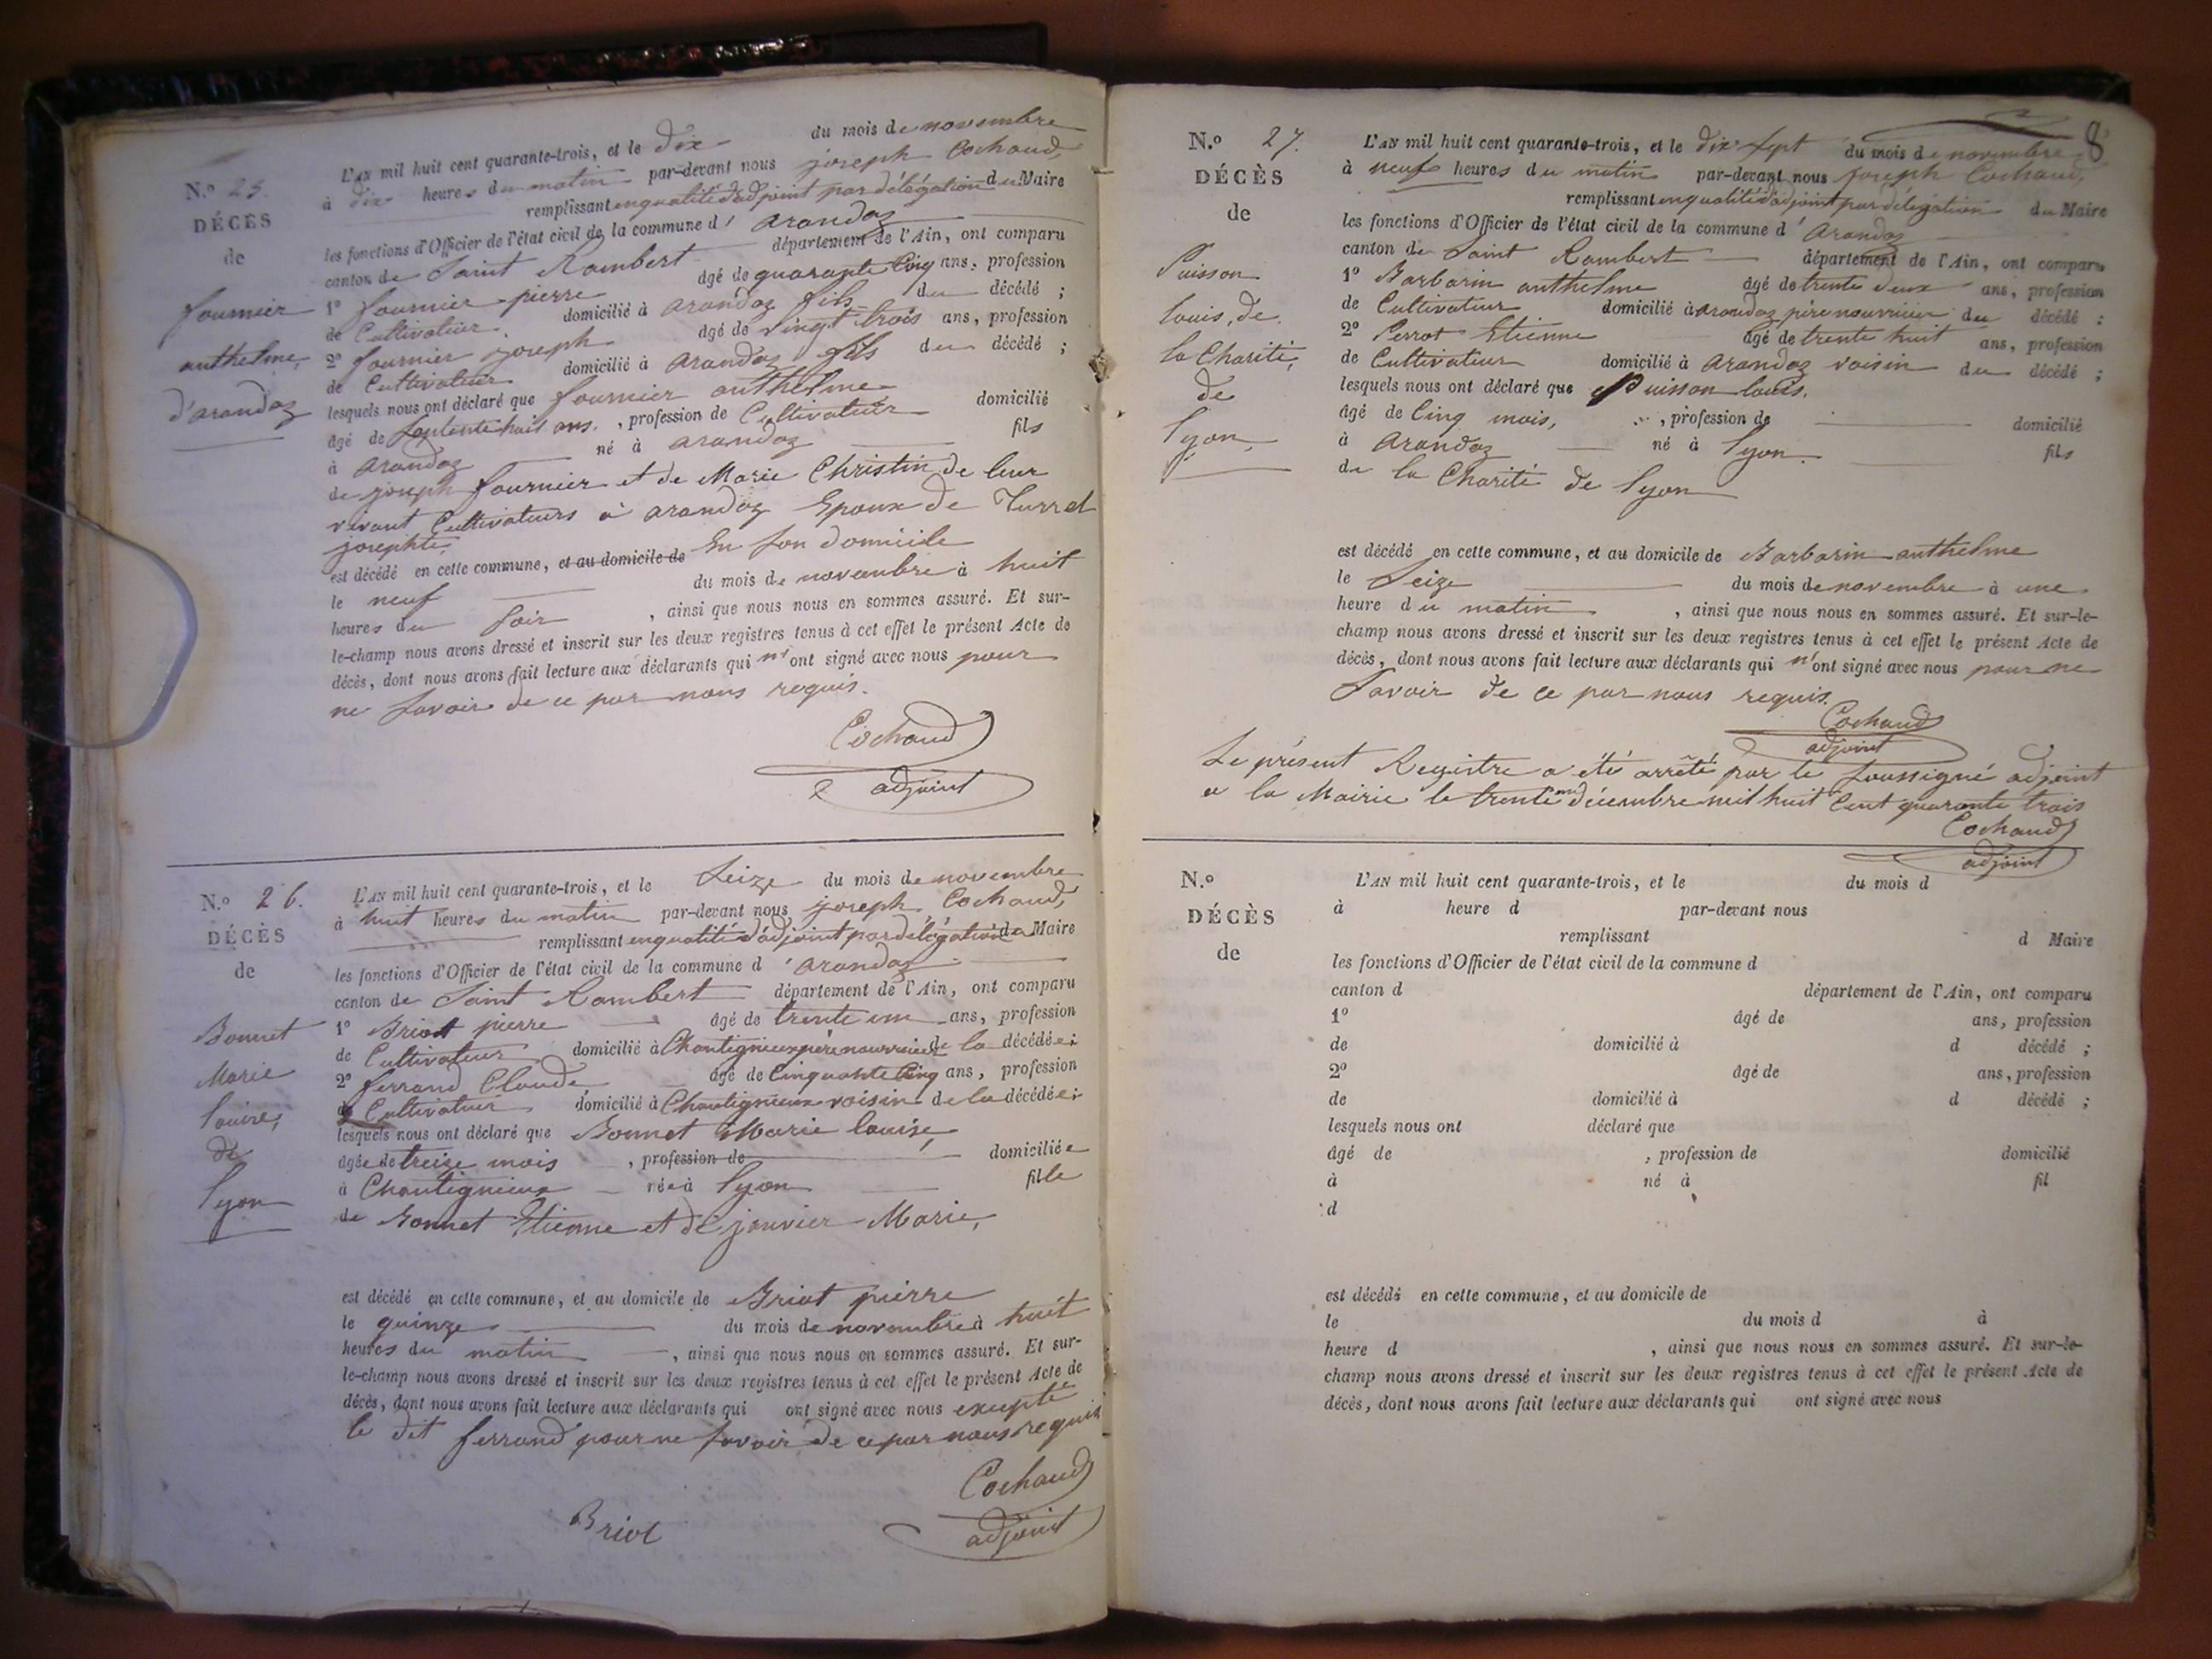 N.º 25.
DÉCÈS
de
fournier
anthelme,
d'arandaz
L'AN mil huit cent quarante-trois, et le dix du mois de novembre
à dix heures du matin par-devant nous joseph Cochaud,
remplissant en qualité d'adjoint par délégation du Maire
les fonctions d'Officier de l'état civil de la commune d'arandaz
canton de Saint Rambert département de l'Ain, ont comparu
1º fournier pierre âgé de quarante Cinq ans, profession
de Cultivateur. domicilié à arandaz fils du décédé ;
2º fournier joseph âgé de vingt trois ans, profession
de Cultivateur domicilié à arandaz fils du décédé ;
lesquels nous ont déclaré que fournier anthelme
âgé de Septente huit ans. , profession de Cultivateur domicilié
à arandaz né à arandaz fils
de joseph fournier et de Marie Christin de leur
vivant Cultivateurs à arandaz Epoux de Turrel
josephte,
est décédé en cette commune, et au domicile de En son domicile
le neuf du mois de novembre à huit
heures du soir , ainsi que nous nous en sommes assuré. Et sur-
le-champ nous avons dressé et inscrit sur les deux registres tenus à cet effet le présent Acte de
décès, dont nous avons fait lecture aux déclarants qui n'ont signé avec nous pour
ne Savoir de ce par nous requis.
Cochaud
adjoint
N.º 26.
DÉCÈS
de
Bonnet
Marie
louise,
de
lyon
L'AN mil huit cent quarante-trois, et le Seize du mois de novembre
à huit heures du matin par-devant nous joseph Cochaud,
remplissant en qualité d'adjoint par délégation du Maire
les fonctions d'Officier de l'état civil de la commune d'arandaz
canton de Saint Rambert département de l'Ain, ont comparu
1º Briot pierre âgé de trente un ans, profession
de Cultivateur domicilié à Chantignieux père nourricier de la décédée ;
2º ferrand Claude âgé de Cinquante Cinq ans, profession
de Cultivateur domicilié à Chantignieux voisin de la décédée ;
lesquels nous ont déclaré que Bonnet Marie louise,
âgée de treize mois , profession de domiciliée
à Chantignieux née à lyon fille
de Bonnet Etienne et de janvier Marie,
est décédé en cette commune, et au domicile de Briot pierre
le quinze du mois de novembre à huit
heures du matin , ainsi que nous nous en sommes assuré. Et sur-
le-champ nous avons dressé et inscrit sur les deux registres tenus à cet effet le présent Acte de
décès, dont nous avons fait lecture aux déclarants qui ont signé avec nous excepté
le dit ferrand pour ne Savoir de ce par nous requis
Cochaud
Briot
adjoint
8
N.º 27.
DÉCÈS
de
Puisson
louis, de
la Charité,
de
lyon,
L'AN mil huit cent quarante-trois, et le dix Sept du mois de novembre
à neuf heures du matin par-devant nous joseph Cochaud,
remplissant en qualité d'adjoint par délégation du Maire
les fonctions d'Officier de l'état civil de la commune d'arandaz
canton de Saint Rambert département de l'Ain, ont comparu
1º Barbarin anthelme âgé de trente deux ans, profession
de Cultivateur domicilié à arandaz père nourricier du décédé ;
2º Perrot Etienne âgé de trente huit ans, profession
de Cultivateur domicilié à arandaz voisin du décédé ;
lesquels nous ont déclaré que Puisson louis.
âgé de Cinq mois, , profession de domicilié
à arandaz né à lyon. fils
de la Charité de lyon
est décédé en cette commune, et au domicile de Barbarin anthelme
le Seize du mois de novembre à une
heure du matin , ainsi que nous nous en sommes assuré. Et sur-le-
champ nous avons dressé et inscrit sur les deux registres tenus à cet effet le présent Acte de
décès, dont nous avons fait lecture aux déclarants qui n'ont signé avec nous pour ne
Savoir de ce par nous requis.
Cochaud
adjoint
Le présent Registre a été arrêté par le Soussigné adjoint
a la Mairie le trente un décembre mil huit Cent quarante trois
Cochaud
adjoint
N.º
DÉCÈS
de
L'AN mil huit cent quarante-trois, et le du mois d
à heure d par-devant nous
remplissant d Maire
les fonctions d'Officier de l'état civil de la commune d
canton d département de l'Ain, ont comparu
1º âgé de ans, profession
de domicilié à d décédé ;
2º âgé de ans, profession
de domicilié à d décédé ;
lesquels nous ont déclaré que
âgé de , profession de domicilié
à né à fil
d
est décédé en cette commune, et au domicile de
le du mois d à
heure d , ainsi que nous nous en sommes assuré. Et sur-le-
champ nous avons dressé et inscrit sur les deux registres tenus à cet effet le présent Acte de
décès, dont nous avons fait lecture aux déclarants qui ont signé avec nous